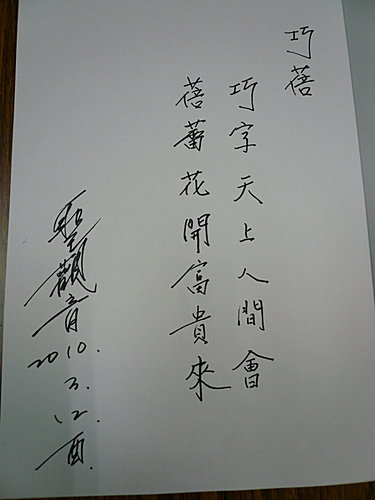 巧蓓
巧字天上人間會
蓓蕾花開富貴來
聖觀音
2010.
3.
12.
酉.